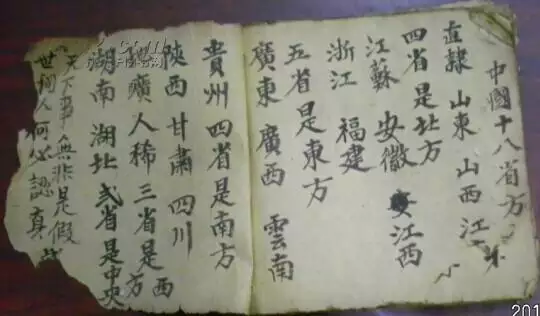 中國十八省方
直隸 山東 山西 江
四省是北方
江蘇 安徽 江西
浙江 福建
五省是東方
廣東 廣西 雲南
貴州四省是南方
陝西 甘肅 四川
曠人稀三省是西方
湖南 湖北 弍省是中央
天下事無非是假
世間人何必認真
201